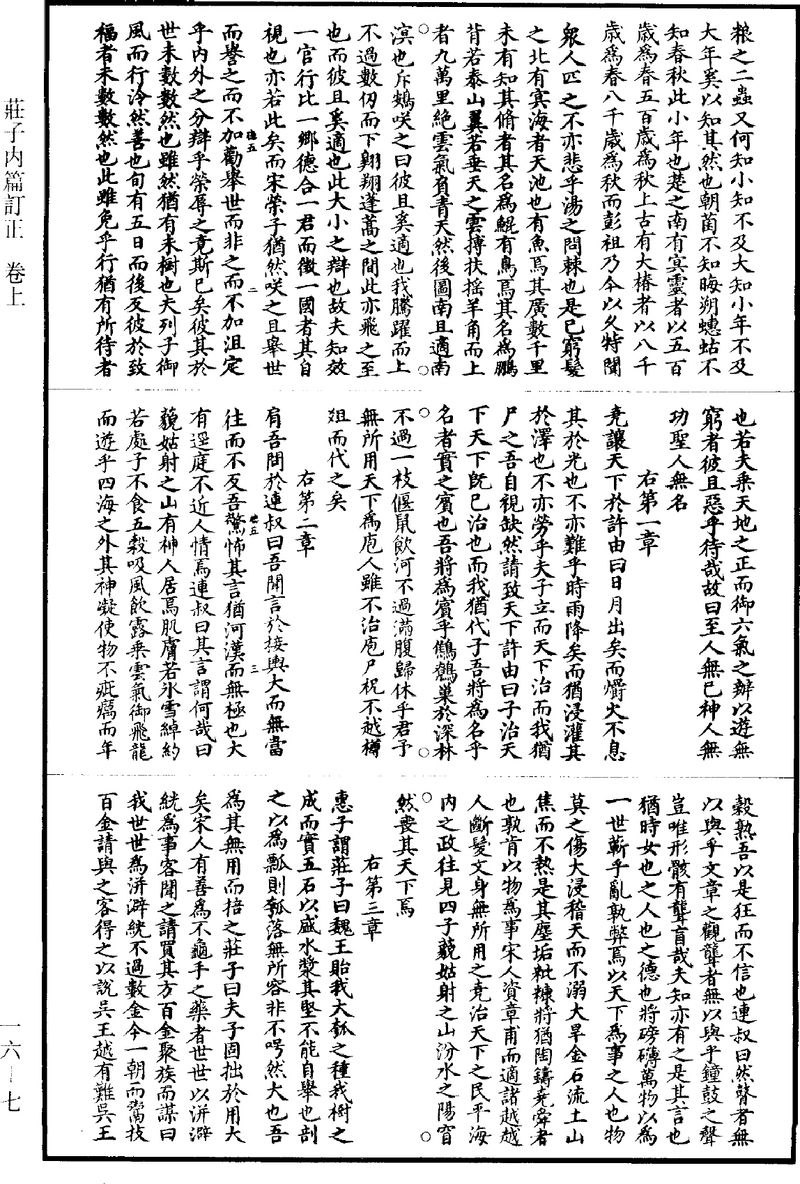 粮之二蟲又何知小知不及大知小年不及
大年奚以知其然也朝菌不知晦朔蟪蛄不
知春秋此小年也楚之南有冥靈者以五百
歲為春五百歲為秋上古有大椿者以八千
歲為春八千歲為秋而彭祖乃今以久特聞
衆人匹之不亦悲乎湯之問棘也是已窮髮
之北有冥海者天池也有魚焉其廣數千里
未有知其脩者其名為鯤有鳥焉其名為鵬
背若泰山翼若垂天之雲摶扶搖羊角而上
者九萬里絕雲氣負青天然後圖南且適南
溟也斥鴳咲之曰彼且奚適也我騰躍而上
不過數仞而下翱翔蓬蒿之間此亦飛之至
也而彼且奚適也此大小之辯也故夫知效
一官行比一鄉德合一君而徵一國者其自
視也亦若此矣而宋榮子猶然咲之且舉世
而譽之而不加勸舉世而非之而不加沮定
乎內外之分辯乎榮辱之竟斯已矣彼其於
世未數數然也雖然猶有未樹也夫列子御
風而行泠然善也旬有五日而後反彼於致
福者未數數然也此雖免乎行猶有所待者
也若夫乘天地之正而御六氣之辯以遊無
窮者彼且惡乎待哉故曰至人無已神人無
功聖人無名
右第一章
堯讓天下於許由曰日月出矣而爝火不息
其於光也不亦難乎時雨降矣而猶浸灌其
於澤也不亦勞乎夫子立而天下治而我猶
尸之吾自視缺然請致天下許由曰子治天
下天下既已治也而我猶代子吾將為名乎
名者實之賓也吾將為賓乎鷦鷯巢於深林
不過一枝偃鼠飲河不過滿腹歸休乎君予
無所用天下為庖人雖不治庖尸祝不越樽
俎而代之矣
右第二章
肩吾問於連叔曰吾聞言於接輿大而無當
往而不反吾驚怖其言猶河漢而無極也大
有逕庭不近人情焉連叔曰其言謂何哉曰
藐姑射之山有神人居焉肌膚若氷雪綽約
若處子不食五穀吸風飲露乘雲氣御飛龍
而遊乎四海之外其神凝使物不疵癘而年
穀熟吾以是狂而不信也連叔曰然瞽者無
以與乎文章之觀聾者無以與乎鐘鼓之聲
豈唯形骸有聾盲哉夫知亦有之是其言也
猶時女也之人也之德也將磅礴萬物以為
一世蘄乎亂孰弊焉以天下為事之人也物
莫之傷大浸稽天而不溺大旱金石流土山
焦而不熱是其塵垢粃糠將猶陶鑄堯舜者
也孰肯以物為事宋人資章甫而適諸越越
人斷髮文身無所用之堯治天下之民平海
內之政往見四子藐姑射之山汾水之陽窅
然喪其天下焉
右第三章
惠子謂莊子曰魏王貽我大瓠之種我樹之
成而實五石以盛水漿其堅不能自舉也剖
之以為瓢則瓠落無所容非不呺然大也吾
為其無用而掊之莊子曰夫子固拙於用大
矣宋人有善為不龜手之藥者世世以洴澼
絖為事客聞之請買其方百金聚族而謀曰
我世世為洴澼絖不過數金今一朝而鬻技
百金請與之客得之以說吳王越有難吳王
莊子內篇訂正 卷上
一六—七